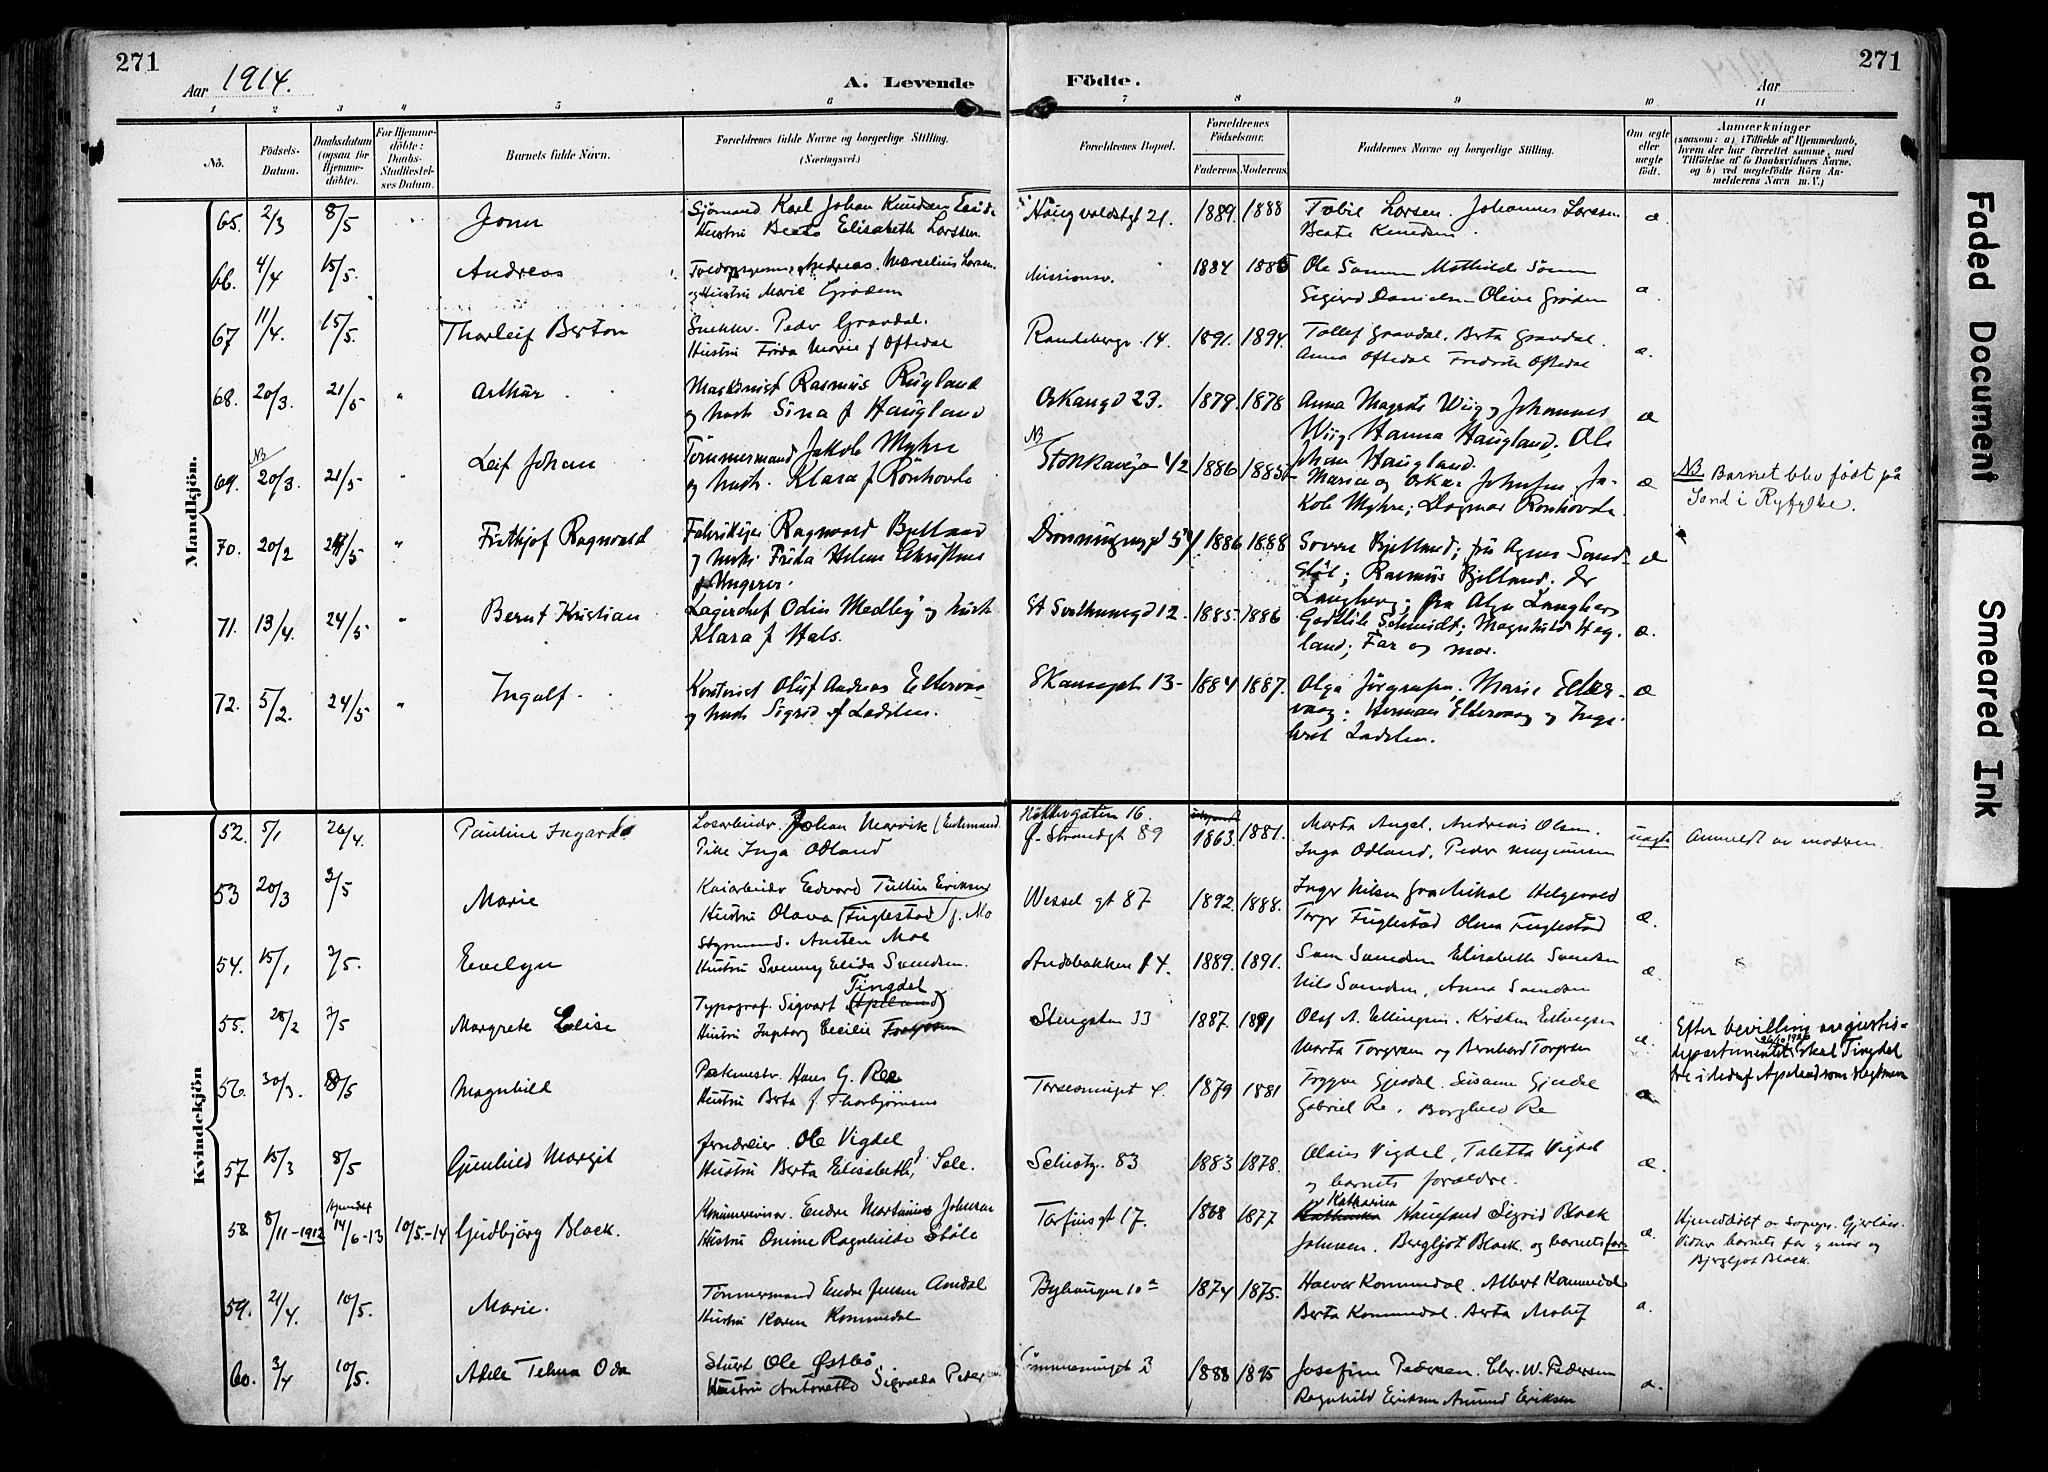 271
Aar 1914.
A. Levende
Födte.
271
Aar
1 2 3 4 5 6 7 8 9 10 11
No.
Födsels-Datum.
Daabsdatum (ogsaa for Hjemme-döbte).
For Hjemme-döbte: Daabs-Stadfæstel-ses Datum.
Barnets fulde Navn.
Forældrenes fulde Navne og borgerlige Stilling. (Næringsvei.)
Forældrenes Bopæl.
Forældrenes Födselsaar.
Faderens. Moderens.
Faddernes Navne og borgerlige Stilling.
Om ægte eller uægte födt.
Anmærkninger
(saasom: a) i Tilfælde af Hjemmedaab, hvem der har forrettet samme, med Tilföielse af to Daabsvidners Navne, og b) ved uægtefödte Börn An-melderens Navn m. V.)
Mandkjön.
65. 2/3 8/5 " Sjömand Karl Johan Knudsen
Hustru Elisabeth Larsen.
21. 1889. 1888 Larsen. Johannes Larsen
Beate Knudsen. æ
66. 4/4 15/5. Andreas Andreas Marselius Larsen
og Hustru Marie Gröden
Missionsv. 1884 1885 Ole Mathilde
Sigurd Danielsen Olive Gröden æ.
67 11/4. 15/5. Thorleif Berton Snekker. Peder Gravdal.
Hustru Frida Marie f Oftedal
Randebergv. 14. 1891. 1894. Tollef Gravdal. Berta Gravdal.
Anna Oftedal Fredrik Oftedal æ.
68. 20/3. 21/5 " Arthur Maskinist Rasmus Rügland
og hustr Sina f Haugland
Oskarsgd 23. 1879. 1878 Anna Magrete Wiig og Johannes
Wiig. Hanna Haugland. Ole
Johan Haugland. æ
69. NB 20/3. 21/5 " Leif Johan Tömmermand Jakob Myhre
og hustr. Klara f Rönhovde
NB Stokkaveien 42 1886 1885 Maria og Oskar Johnsen, Ja-
kob Myhre; Dagmar Rönhovde. æ
NB Barnet blev født på
Sand i Ryfylke.
70. 20/2 24/5 " Frithjof Ragnvald Fabrikeier Ragnvald Bjelland
og hustr. Frida Helene Christine
f Ungerer.
Dronningensgd 54. 1886 1888 Sverre Bjelland; fru Agnes Sand-
støl; Rasmus Bjelland. Dr
Langberg; fru Langberg æ
71. 13/4. 24/5 " Bernt Kristian Lagerchef Odin Medby og hustr
Klara f Hals.
St Svithunsgd 12. 1885. 1886 Gottlieb Schmidt; Magnhild Heg-
land; Far og mor. æ.
72. 5/2. 24/5 " Ingolf. Kontorist Oluf Andreas Eltervaag
og hustr Sigrid f Ladsten.
Skansegt. 13 1884 1887. Olga Jörgensen, Marie Elter-
vaag; Herman Eltervaag og Inge-
bret Ladsten. æ
Kvindekjön
52. 5/1 26/4. Pauline Ingarda Losarbeider. Johan Marvik (Enkemand
Pike Inga Odland
16.
Ø. Strandgt 89 1863. 1881. Marta Angel. Andreas Olsen.
Inga Odland. Peder Magnussen uægte Anmeldt av moderen.
53 20/3 3/5 Marie Kaiarbeider Edvard Tullin Eriksen
Hustru Olava (Fuglestad) f. Mo
Wessel gt 87 1892. 1888. Inger Nilsen Mikal Helgevold
Torger Fuglestad Olena Fuglestad æ.
54. 15/1 3/5. Evelyn Styrmand. Austen Moe
Hustru Svenny Elida Svendsen.
Andebakken 14. 1889. 1891. Sam Svendsen Elisabeth Svendsen
Nils Svendsen, Anna Svendsen æ.
55. 28/2 3/5 Margrete Elise Typograf. Sigvart Tingdel (Apeland)
Hustru Ingborg Cecilie Torgersen
Stengaten 33 1887. 1891 Olaf A. Ellingsen. Kirsten Ellingsen
Marta Torgersen og Bernhard Torgersen æ.
Efter bevilling av justis-
departementet 1926 skal Tingdel
tre istedenf Apeland som slegtsnavn
56. 30/3. 8/5 Magnhild Pakmester. Hans G. Ree
Hustru Berta f Thorbjörnsen
4. 1879 1881 Trygve Gjesdal. Susanne Gjesdal
Gabriel Re. Borghild Re æ
57 15/3 8/5 Gunhild Margit Jerndreier. Ole Vigdel
Hustru Berta Elisabeth f. Sele.
Schiøtzg. 83 1883 1878. Olaus Vigdel, Taletta Vigdel
og barnets forældre. æ.
58 8/11-1912 14/6-13 10/5.-14 Gudbjörg Black. Endre Martinius Johnsen
Hustru Ragnhilde Støle
Torfinsgt 17. 1868 1877 Katharina Haugland Sigrid Black
Johnsen. Bergljot Black. og barnets far æ.
Hjemmedöbt av
Vidner barnets far og mor og
Bergljot Black.
59. 21/4. 10/5. Marie. Tömmermand Endre Jensen Amdal
Hustru Karen Kommedal
Byhaugen 10a 1874 1875. Halvor Kommedal. Albert Kommedal
Berta Kommedal. Berta æ.
60. 3/4 10/5. Adele Telma Oda Stuert Ole Østbö
Hustru Antonette Sigvalda Pedersen
3 1888 1895 Josefine Pedersen. Chr. W. Pedersen
Ragnhild Eriksen Amund Eriksen æ.
Faded Document
Smeared Ink